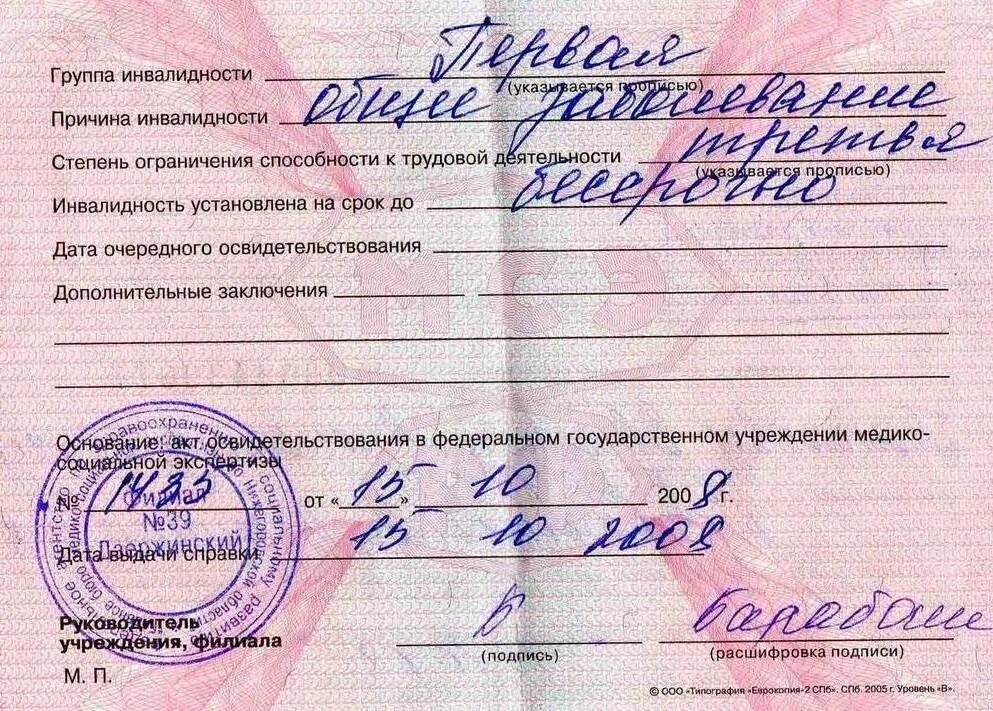 Группа инвалидности Первая
(указывается прописью)
Причина инвалидности общее заболевание
Степень ограничения способности к трудовой деятельности третья
(указывается прописью)
Инвалидность установлена на срок до бессрочно
Дата очередного освидетельствования
Дополнительные заключения
МСЭ
Основание: акт освидетельствования в федеральном государственном учреждении медико-
социальной экспертизы
№ 1435 от « 15 » 10 2008 г.
Дата выдачи справки 15 10 2008
Филиал
№39
Дзержинский
Руководитель
учреждения, филиала
(подпись)
(расшифровка подписи)
М. П.
© ООО «Типография «Еврокопия-2 СПб». СПб. 2005 г. Уровень «В».